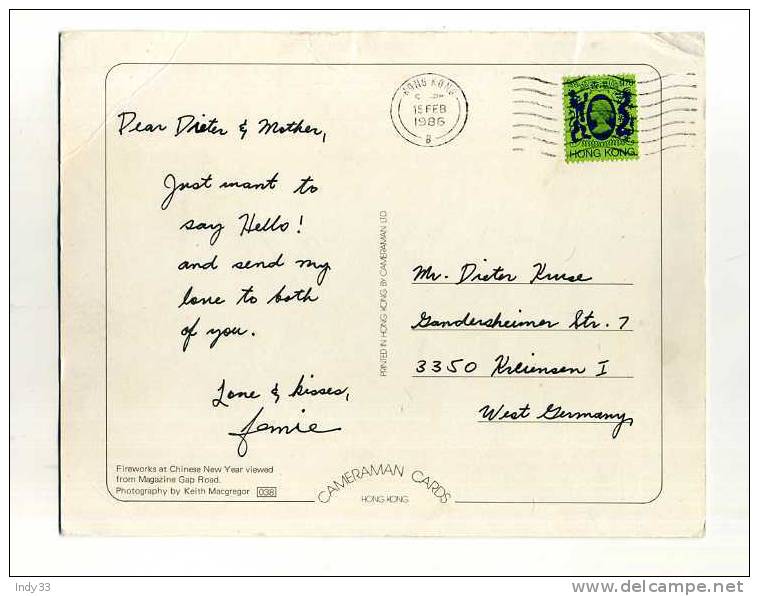 Dear Dieter & Mother,
Just want to
say Hello!
and send my
love to both
of you.
Love & kisses,
Jamie
HONG KONG
15 FEB
1986
B
HONG KONG
PRINTED IN HONG KONG BY CAMERAMAN LTD
Mr. Dieter Kruse
Gandersheimer Str. 7
3350 Kreiensen I
West Germany
Fireworks at Chinese New Year viewed
from Magazine Gap Road.
Photography by Keith Macgregor 038
CAMERAMAN CARDS
HONG KONG
Indy33
delcampe.net